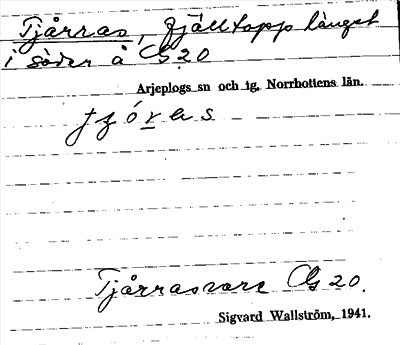 Tjårras, fjälltopp längst
i söder å Cg 20
Arjeplogs sn och tg. Norrbottens län.
Tjårrasvare Cg 20.
Sigvard Wallström, 1941.